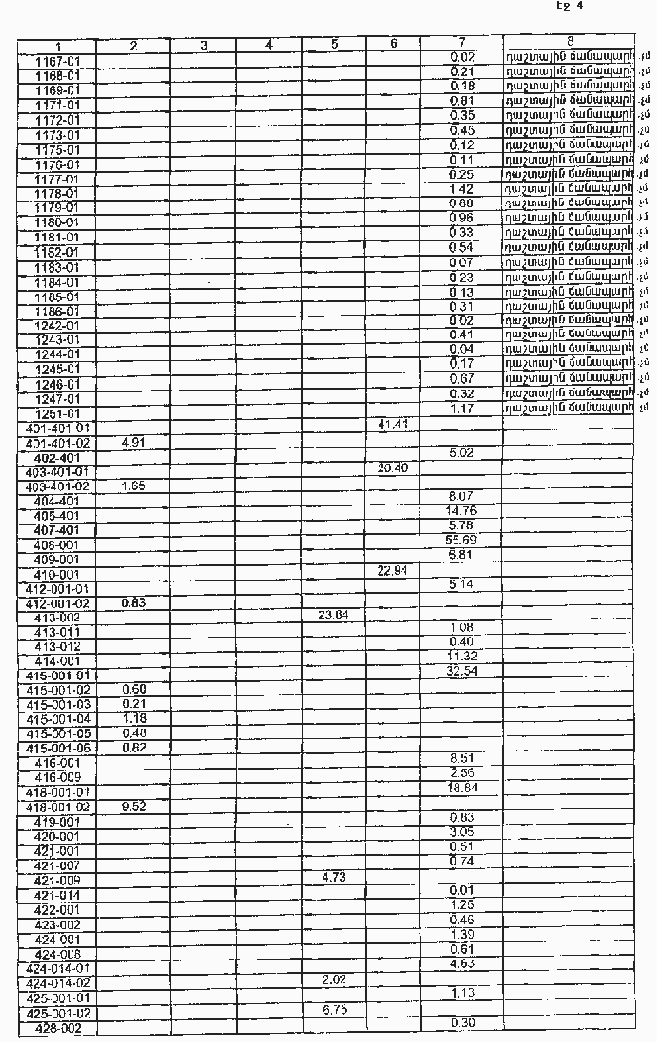 Էջ 4
1 2 3 4 5 6 7 8
1167-01 0.02 դաշտային ճանապարհ .չմ
1168-01 0.21 դաշտային ճանապարհ .չմ
1169-01 0.18 դաշտային ճանապարհ .չմ
1171-01 0.81 դաշտային ճանապարհ .չմ
1172-01 0.35 դաշտային ճանապարհ .չմ
1173-01 0.45 դաշտային ճանապարհ .չմ
1175-01 0.12 դաշտային ճանապարհ .չմ
1176-01 0.11 դաշտային ճանապարհ .չմ
1177-01 0.25 դաշտային ճանապարհ .չմ
1178-01 1.42 դաշտային ճանապարհ .չմ
1179-01 0.60 դաշտային ճանապարհ .չմ
1180-01 0.96 դաշտային ճանապարհ .չմ
1181-01 0.33 դաշտային ճանապարհ .չմ
1182-01 0.54 դաշտային ճանապարհ .չմ
1183-01 0.07 դաշտային ճանապարհ .չմ
1184-01 0.23 դաշտային ճանապարհ .չմ
1185-01 0.13 դաշտային ճանապարհ .չմ
1186-01 0.31 դաշտային ճանապարհ .չմ
1242-01 0.02 դաշտային ճանապարհ .չմ
1243-01 0.41 դաշտային ճանապարհ .չմ
1244-01 0.04 դաշտային ճանապարհ .չմ
1245-01 0.17 դաշտային ճանապարհ .չմ
1246-01 0.67 դաշտային ճանապարհ .չմ
1247-01 0.32 դաշտային ճանապարհ .չմ
1251-01 1.17 դաշտային ճանապարհ .չմ
401-401-01 41.41
401-401-02 4.91
402-401 5.02
403-401-01 20.40
403-401-02 1.65
404-401 8.07
405-401 14.76
407-401 5.78
408-001 55.69
409-001 6.81
410-001 22.94
412-001-01 5.14
412-001-02 0.83
413-002 23.64
413-011 1.08
413-012 0.40
414-001 11.32
415-001-01 32.54
415-001-02 0.60
415-001-03 0.21
415-001-04 1.18
415-001-05 0.40
415-001-06 0.82
416-001 8.51
416-009 2.56
418-001-01 18.84
418-001-02 9.52
419-001 0.83
420-001 3.05
421-001 0.51
421-007 0.74
421-009 4.73
421-014 0.01
422-001 1.25
423-002 0.46
424-001 1.39
424-008 0.61
424-014-01 4.63
424-014-02 2.02
425-001-01 1.13
425-001-02 6.75
428-002 0.30